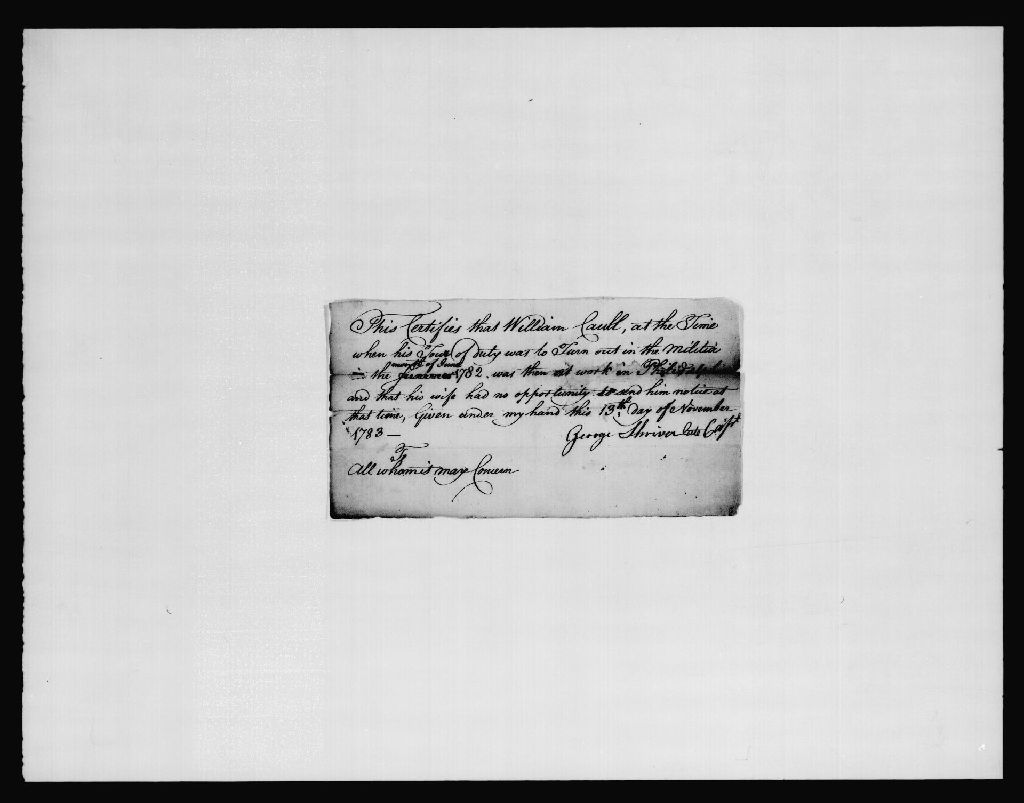 This Certifies that William Caull, at the Time
when his Tour of duty was to Turn out in the militia
month of June
in the 1782 was then at work in Philadelp
and that his wife had no opportunity to send him notice at
that time, Given under my hand this 13th day of November
1783 —
George Shriver late Capt
To
All whom it may Concern